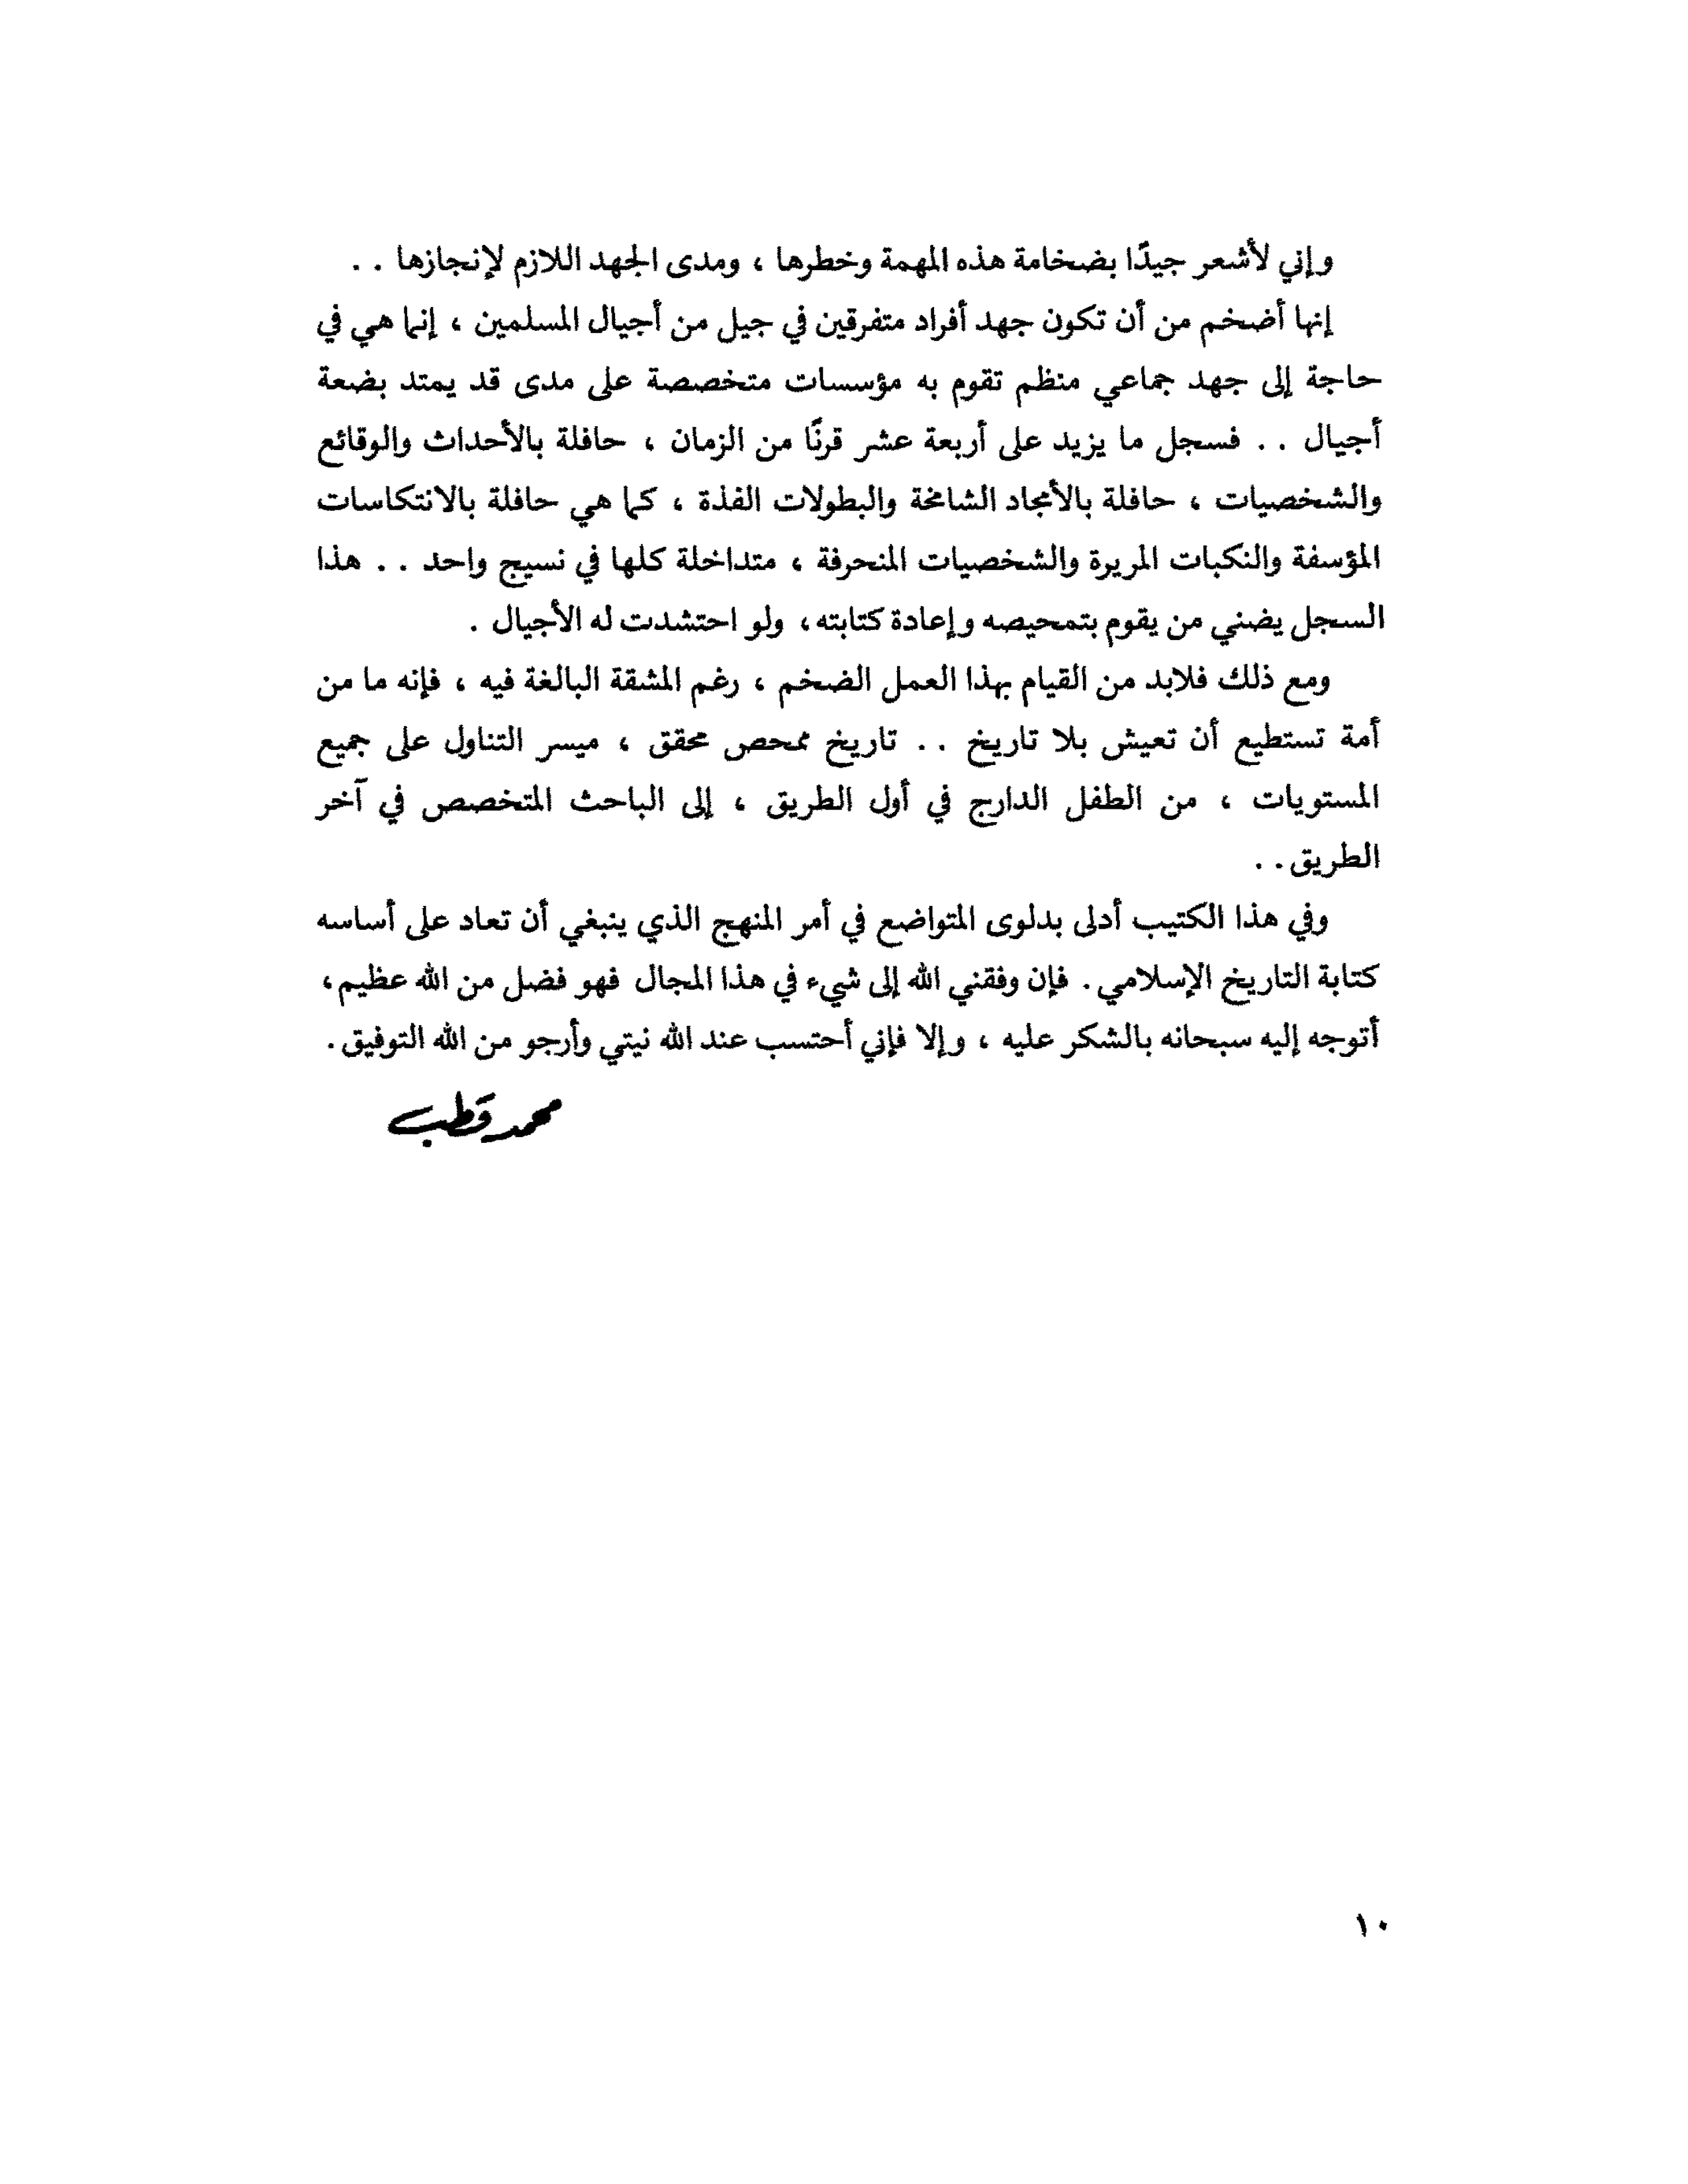 وإني لأشعر جيدًا بضخامة هذه المهمة وخطرها ، ومدى الجهد اللازم لإنجازها . .
إنها أضخم من أن تكون جهد أفراد متفرقين في جيل من أجيال المسلمين ، إنما هي في
حاجة إلى جهد جماعي منظم تقوم به مؤسسات متخصصة على مدى قد يمتد بضعة
أجيال . . فسجل ما يزيد على أربعة عشر قرنًا من الزمان ، حافلة بالأحداث والوقائع
والشخصيات ، حافلة بالأمجاد الشامخة والبطولات الفذة ، كما هي حافلة بالانتكاسات
المؤسفة والنكبات المريرة والشخصيات المنحرفة ، متداخلة كلها في نسيج واحد . . هذا
السجل يضني من يقوم بتمحيصه وإعادة كتابته، ولو احتشدت له الأجيال .
ومع ذلك فلابد من القيام بهذا العمل الضخم ، رغم المشقة البالغة فيه ، فإنه ما من
أمة تستطيع أن تعيش بلا تاريخ . . تاريخ ممحص محقق ، ميسر التناول على جميع
المستويات ، من الطفل الدارج في أول الطريق ، إلى الباحث المتخصص في آخر
الطريق . .
وفي هذا الكتيب أدلى بدلوى المتواضع في أمر المنهج الذي ينبغي أن تعاد على أساسه
كتابة التاريخ الإسلامي . فإن وفقني الله إلى شيء في هذا المجال فهو فضل من الله عظيم،
أتوجه إليه سبحانه بالشكر عليه ، وإلا فإني أحتسب عند الله نيتي وأرجو من الله التوفيق .
محمد قطب
١٠